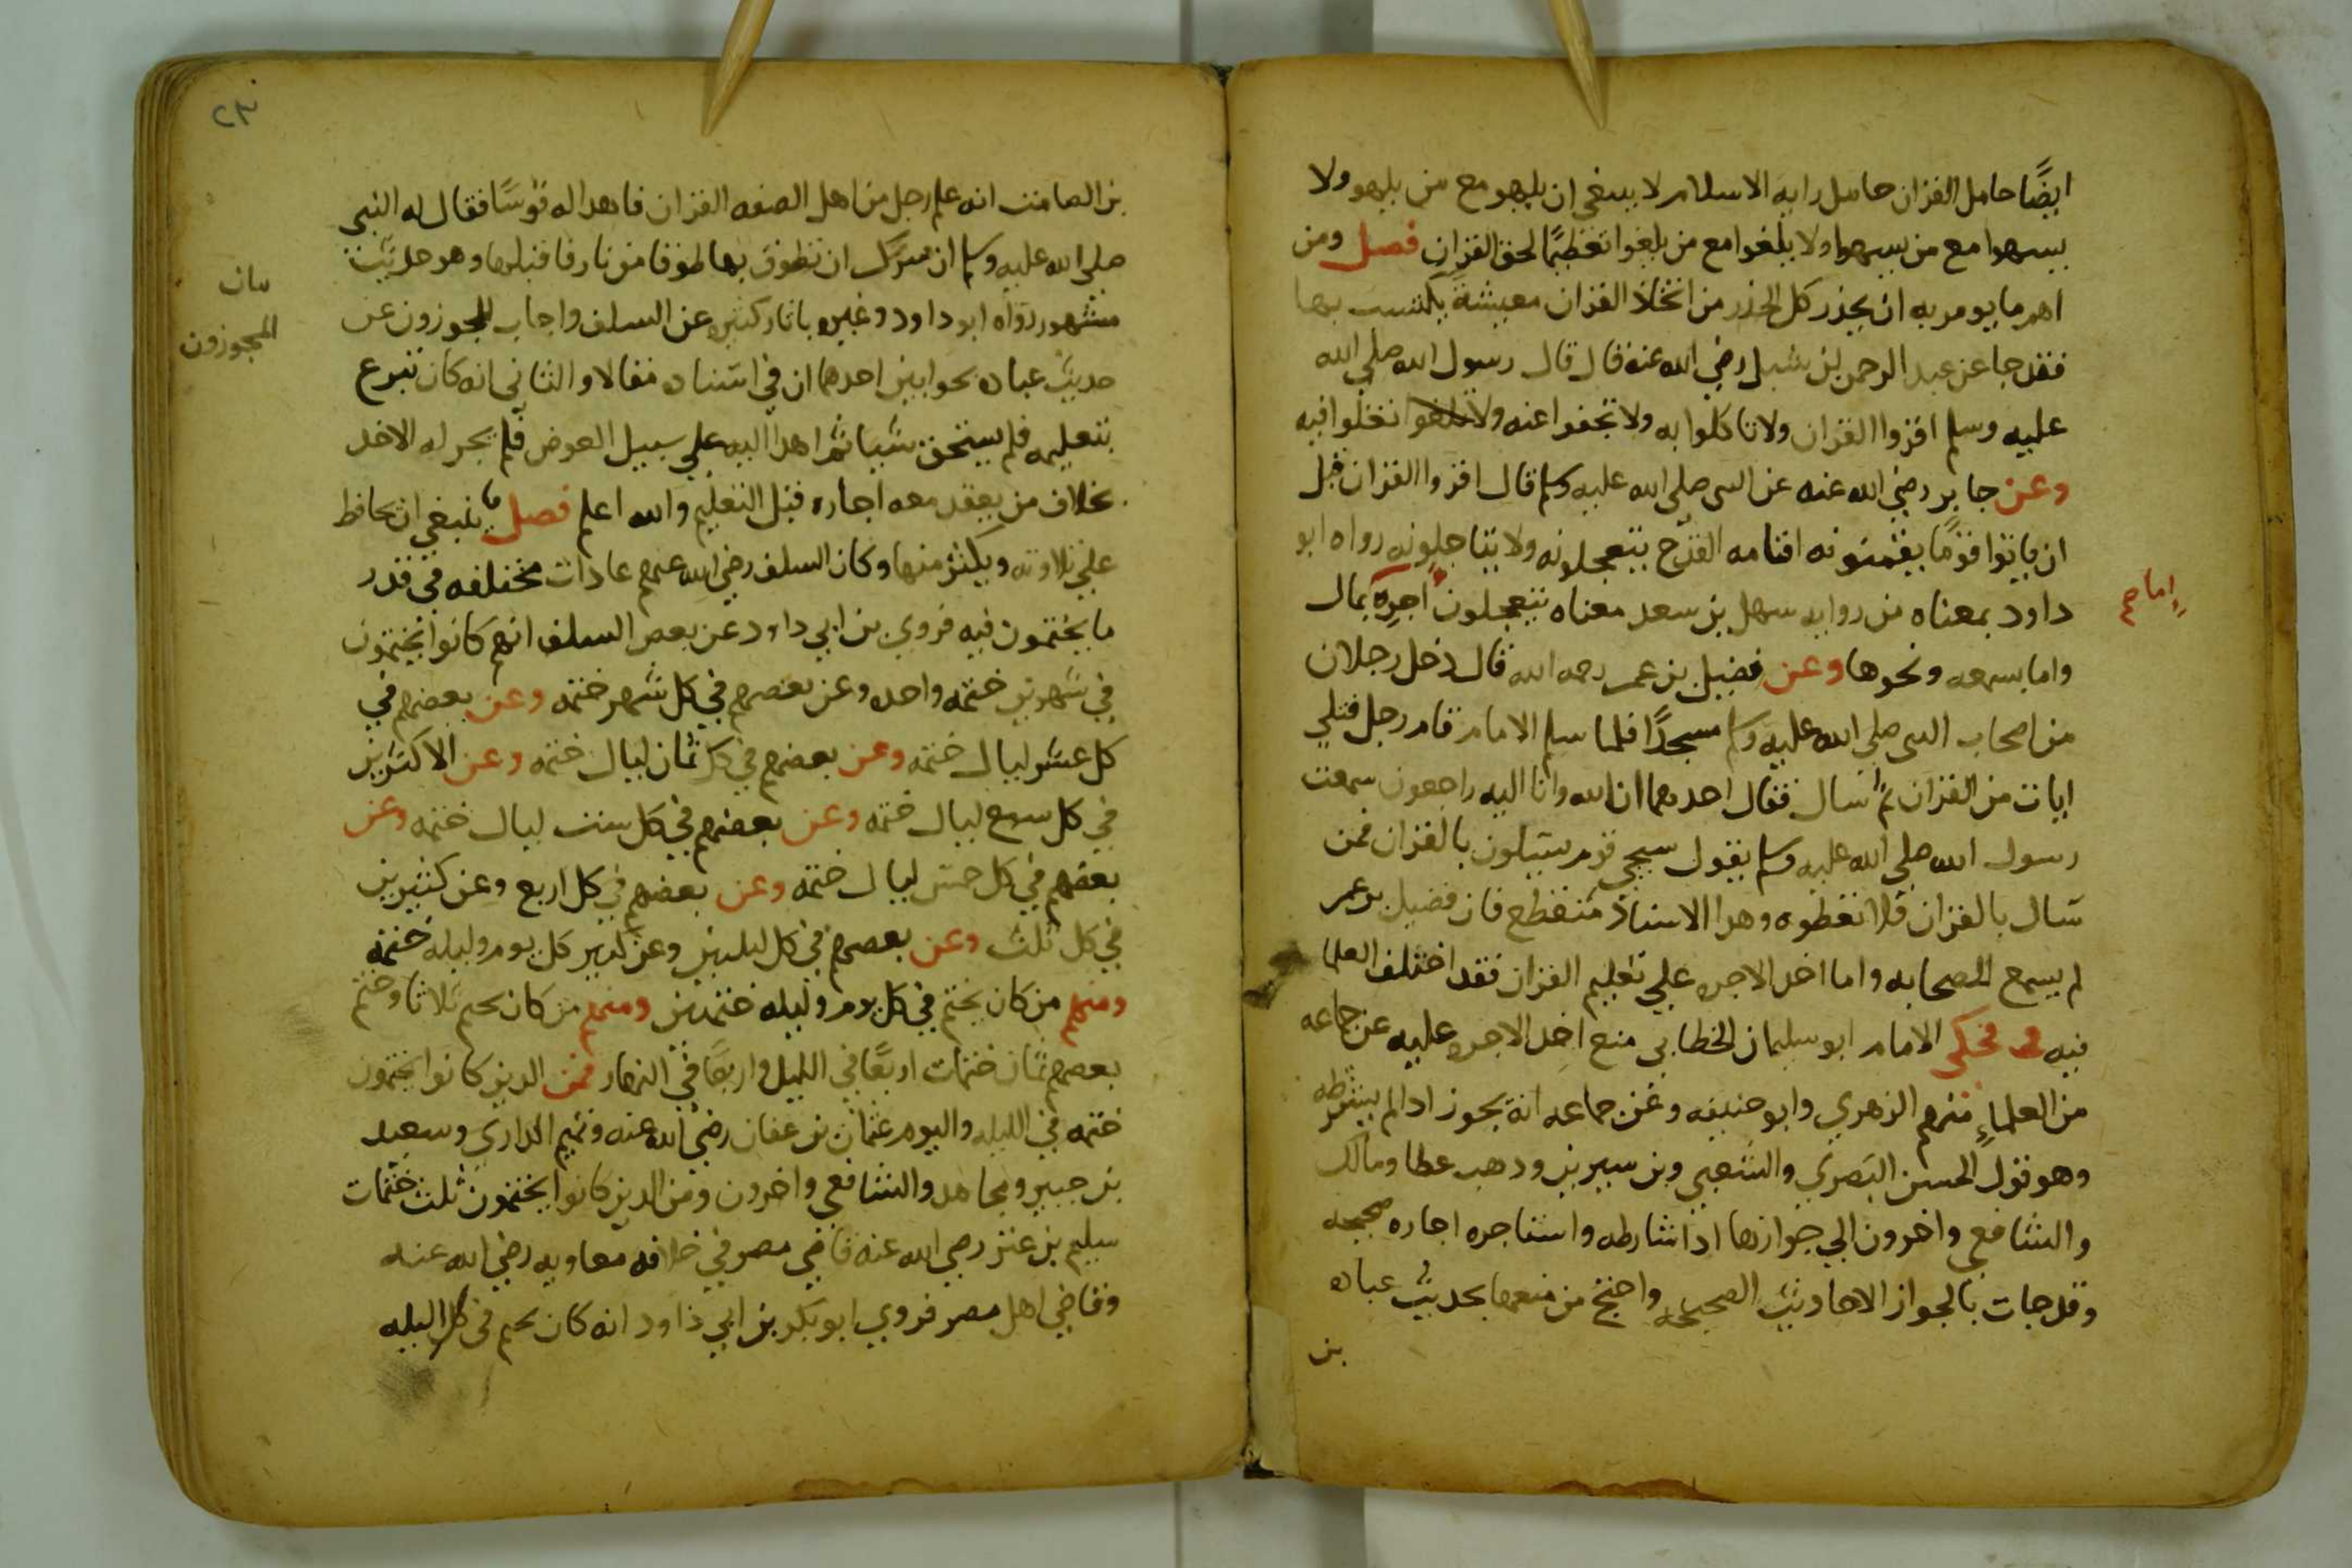 ايضًا حامل القران حامل راية الاسلام لا ينبغي ان يلهو مع من يلهو ولا
يسهوا مع من يسهوا ولا يلغوا مع من يلغوا تعظيمًا لحق القران فصل ومن
اهم ما يومر به ان يحذر كل الحذر من اتخاذ القران معيشة يكتسب بها
فقد جا عن عبد الرحمن بن شبل رضي الله عنه قال قال رسول الله صلى الله
عليه وسلم اقروا القران ولا تاكلوا به ولا تجفوا عنه ولا تغلوا فيه
وعن جابر رضي الله عنه عن النبي صلى الله عليه وسلم قال اقروا القران قبل
ان ياتوا قومًا يقيمونه اقامه القدح يتعجلونه ولا يتاجلونه رواه ابو
داود بمعناه من روايه سهل بن سعد معناه يتعجلون اجره بمال
اما
واما بسمعه ونحوها وعن فضيل بن عمر رحمه الله قال دخل رجلان
من اصحاب النبي صلى الله عليه وسلم مسجدًا فلما سلم الامام قام رجل فتلى
ايات من القران ثم سال فقال احدهما انا لله وانا اليه راجعون سمعت
رسول الله صلى الله عليه وسلم يقول سيجي قوم يسيلون بالقران فمن
سال بالقران فلا تعطوه وهدا الاسناد منقطع فان فضيل بن عمر
لم يسمع الصحابه واما اخد الاجره على تعليم القران فقد اختلف العلما
فيه فحكى الامام ابو سليمان الخطابي منع اخد الاجره عليه عن جماعه
من العلماء منهم الزهري وابو حنيفه وعن جماعه انه يجوز ادا لم يشرطه
وهو قول الحسن البصري والشعبي وبن سيرين ودهب عطا ومالك
والشافعي واخرون الي جوازها ادا شارطه واستاجره اجاره صحيحه
وقد جات بالجواز الاحاديث الصحيحه واحتج من منعها بحديث عباده
بن
بن الصامت انه علم رجل من اهل الصفه القران فاهدا له قوسًا فقال له النبي
صلى الله عليه وسلم ان سرك ان تطوق بها طوقا من نار فاقبلها وهو حديث
مشهور رواه ابو داود وغيره باثار كثيره عن السلف واجاب المجوزون عن
بيان
المجوزون
حديث عباده بجوابين احدهما ان في اسناده مقالا والثاني انه كان تبرع
بتعليمه فلم يستحق شيا ثم اهدا اليه على سبيل العوض فلم يجز له الاخد
بخلاف من يعقد معه اجاره قبل التعليم والله اعلم فصل ينبغي ان يحافظ
علي تلاوته ويكثر منها وكان السلف رضي الله عنهم عادات مختلفه في قدر
ما يختمون فيه فروي بن ابي داود عن بعض السلف انهم كانوا يختمون
في شهرين ختمه واحده وعن بعضهم في كل شهر ختمه وعن بعضهم في
كل عشر ليال ختمه وعن بعضهم في كل ثمان ليال ختمه وعن الاكثرين
في كل سبع ليال ختمه وعن بعضهم في كل ست ليال ختمه وعن
بعضهم في كل خمس ليال ختمه وعن بعضهم في كل اربع وعن كثيرين
في كل ثلث وعن بعضهم في كل ليلتين وعن كثير كل يوم وليله ختمه
ومنهم من كان يختم في كل يوم وليله ختمتين ومنهم من كان يختم ثلاثا وختم
بعضهم ثمان ختمات اربعًا في الليل واربعًا في النهار فمن الدين كانوا يختمون
ختمه في الليله واليوم عثمان بن عفان رضي الله عنه وتميم الداري وسعيد
بن جبير ومجاهد والشافعي واخرون ومن الدين كانوا يختمون ثلث ختمات
سليم بن عنز رضي الله عنه قاضي مصر في خلافه معاويه رضي الله عنه
وقاضي اهل مصر فروي ابو بكر بن ابي داود انه كان يختم في كل ليله